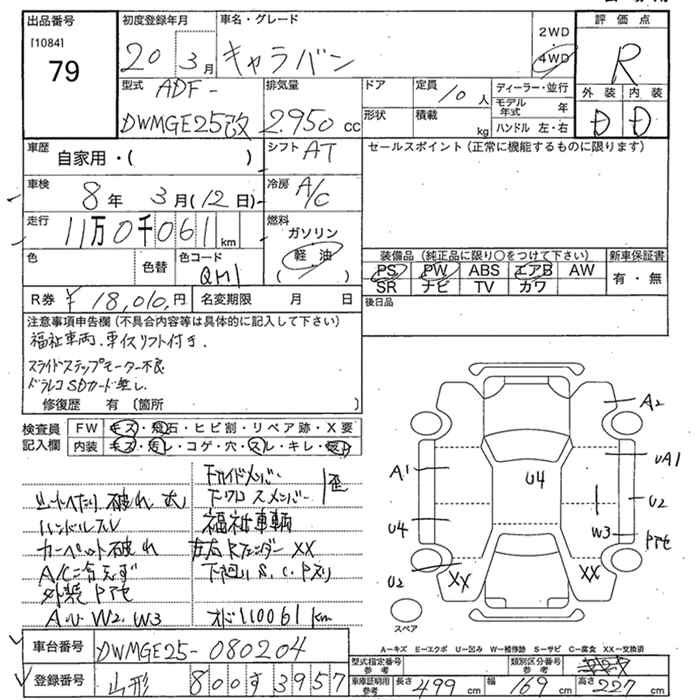 出品番号 初度登録年月 車名・グレード 評価点
[1084]
79
20 3月 キャラバン 2WD 4WD R
外装 内装
D D
型式 ADF-
DWMGE25改
排気量 2.950 cc
ドア 定員 10人
形状 積載 kg
ディーラー・並行
モデル年式 年
ハンドル 左・右
車歴 自家用・( )
シフト AT
セールスポイント(正常に機能するものに限ります)
車検 8年 3月(12日)
冷房 A/C
走行 11万0千061km
燃料 ガソリン
軽油
( )
色 色替 色コード QM1
装備品(純正品に限り○をつけて下さい) 新車保証書
PS PW ABS エアB AW 有・無
SR ナビ TV カワ
R券 ¥18,010,円 名変期限 月 日
後日品
注意事項申告欄(不具合内容等は具体的に記入して下さい)
福祉車両.車イスリフト付き.
スライドステップモーター不良
ドラレコSDカード無し.
修復歴 有 〔箇所 〕
検査員記入欄
FW キズ・飛石・ヒビ割・リペア跡・X要
内装 キズ・汚レ・コゲ・穴・スレ・キレ・
下サイドメンバー
下クロスメンバー 歪
シートへたり 破れ 大
ハンドルスレ 福祉車輌
カーペット破れ 左右Rフェンダー XX
A/C冷えず 下廻り S.C.Pスリ
外装 Pアセ
A.U W2.W3 オド110061km
A2
A1
UA1
U4
U4
U2
W3
Pアセ
U2
XX
XX
スペア
A―キズ E―エクボ U―凹み W―補修跡 S―サビ C―腐食 XX―交換済
車台番号 DWMGE25-080204
登録番号 山形 800す3957
型式指定番号 参考 類別区分番号 参考
車庫証明用 参考 長さ 499cm 幅 169cm 高さ 227cm